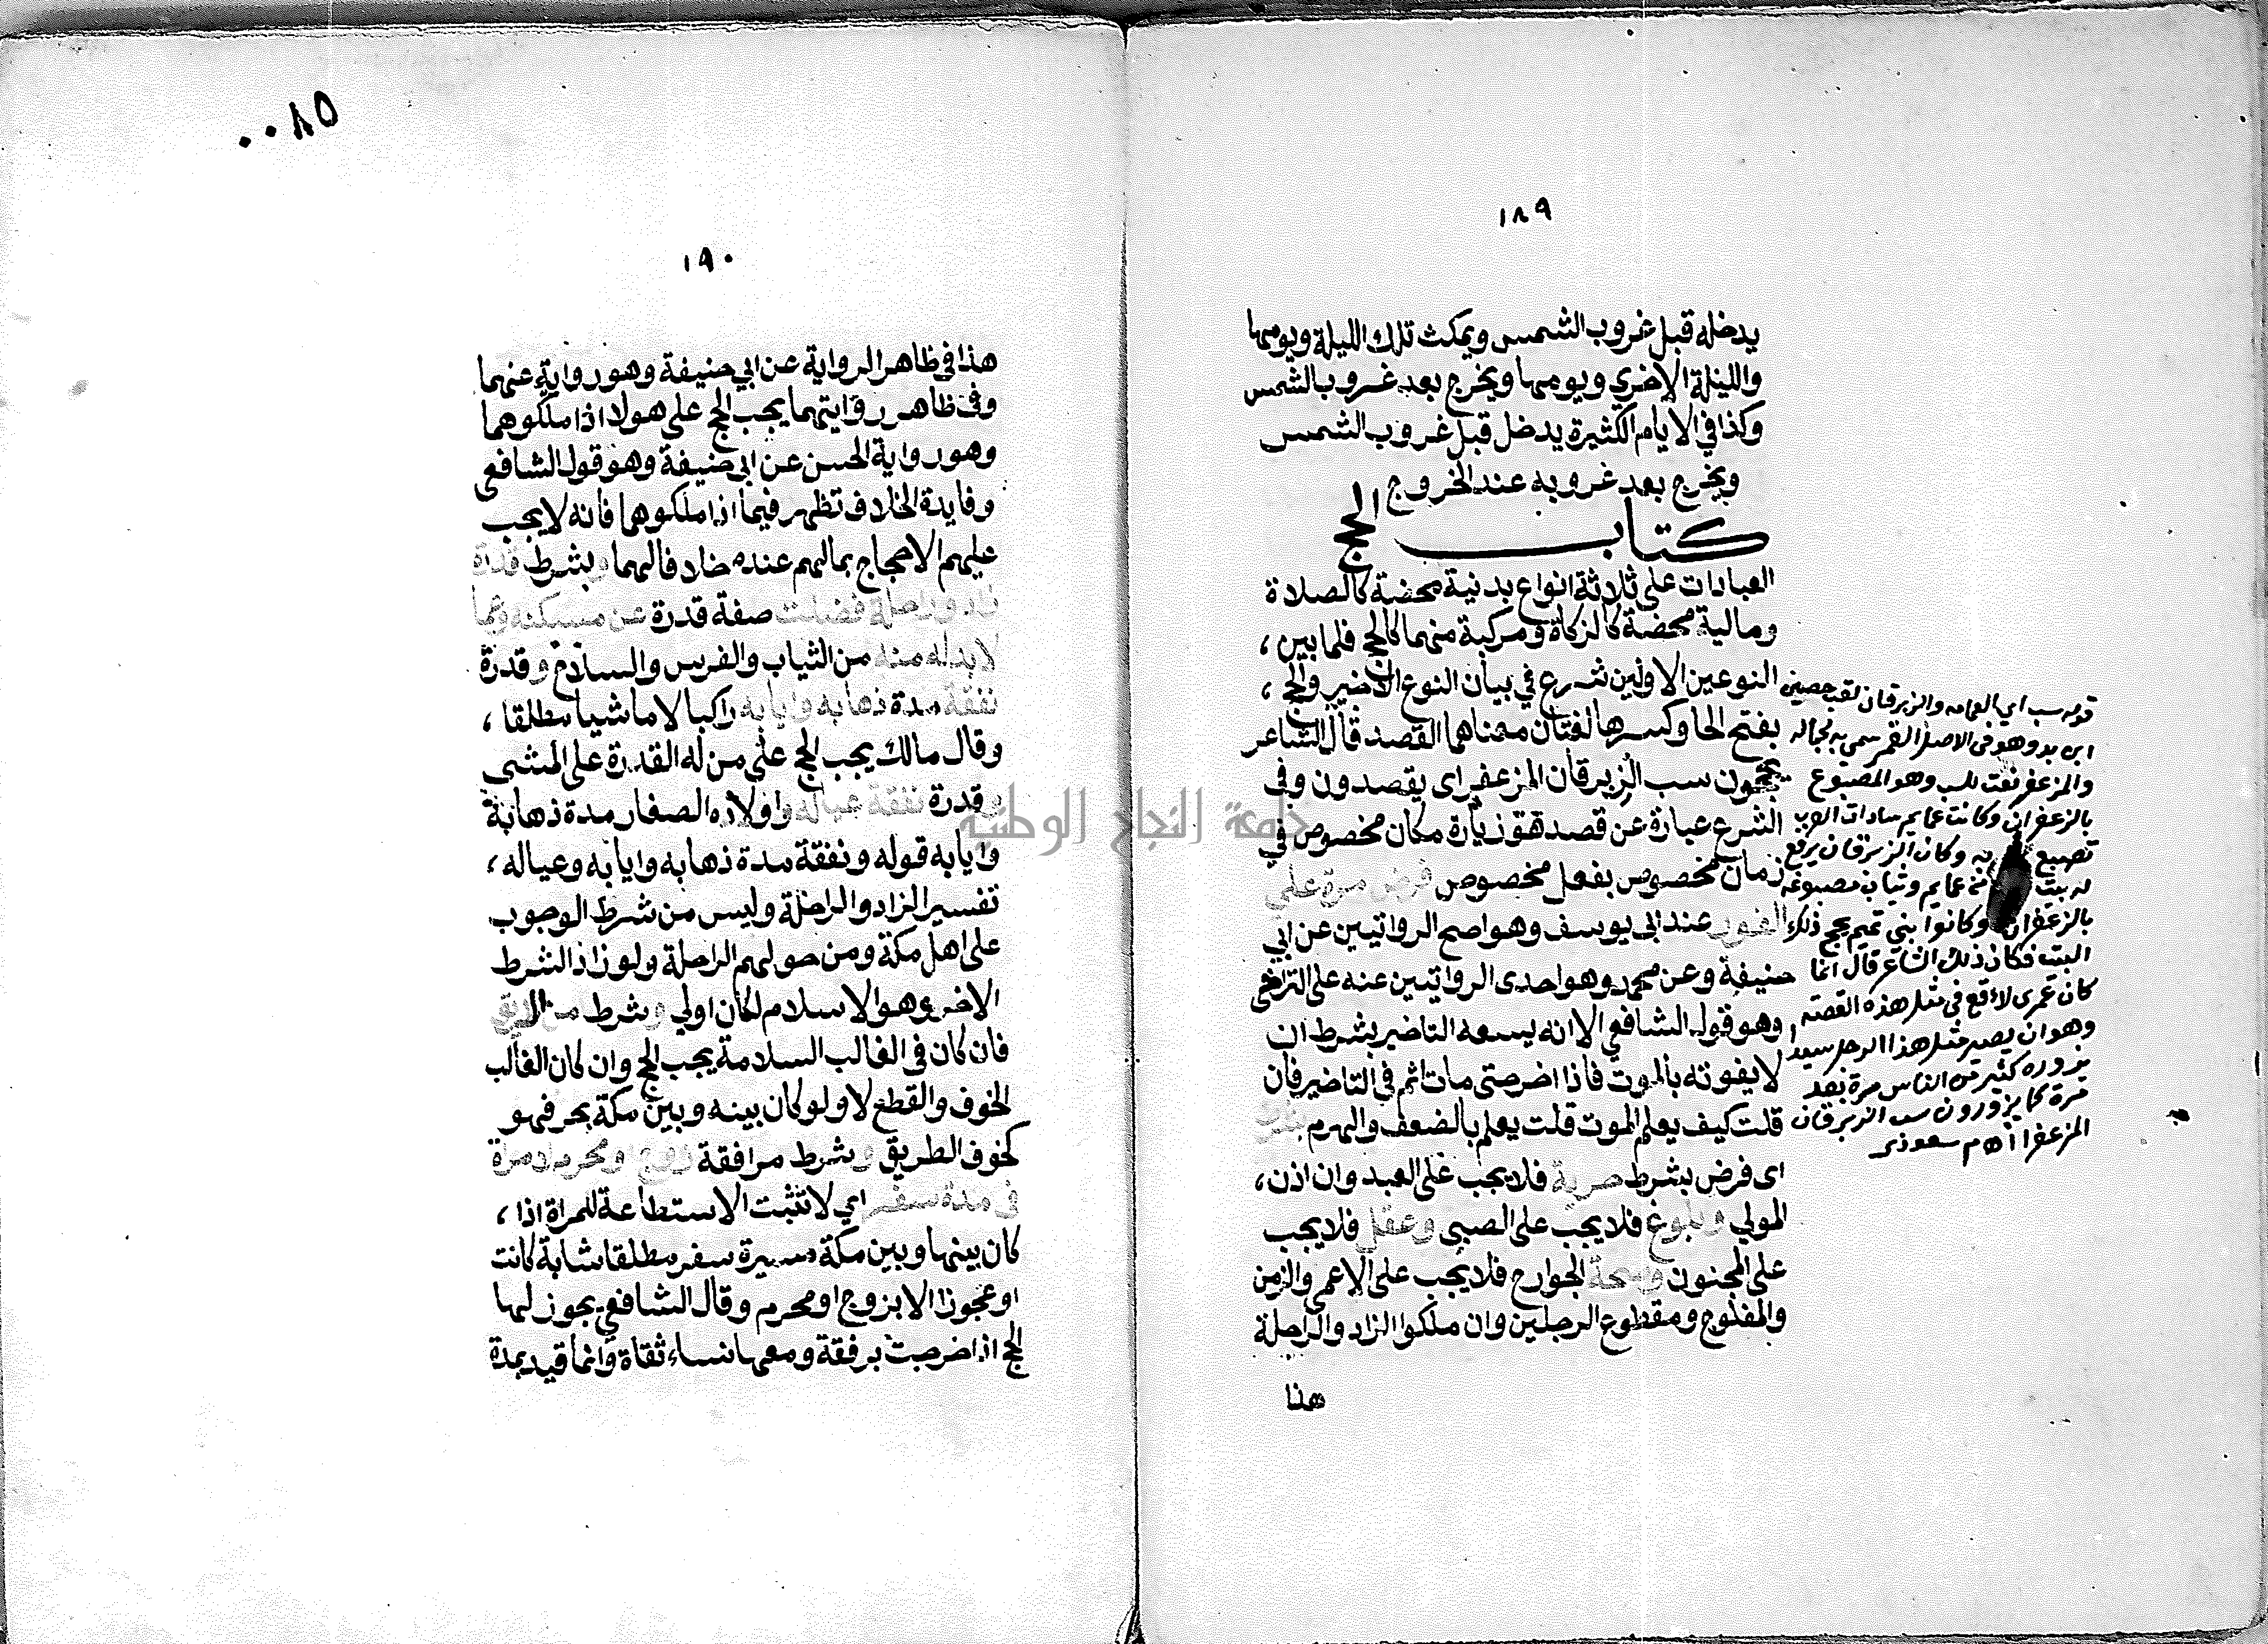 ١٨٩
يدخله قبل غروب الشمس ويمكث تلك الليلة ويومها
والليلة الاخري ويومها ويخرج بعد غروب الشمس
وكذا في الايام الكثيرة يدخل قبل غروب الشمس
ويخرج بعد غروبه عند الخروج
كتاب الحج
العبادات على ثلاثة انواع بدنية محضة كالصلاة
ومالية محضة كالزكاة ومركبة منهما كالحج فلما بين،
النوعين الاولين شرع في بيان النوع الاخير والحج،
بفتح الحا وكسرها لغتان معناهما القصد قال الشاعر
يحجون سب الزبرقان المزعفر اى يقصدون وفى
الشرع عبارة عن قصد هو زيارة مكان مخصوص في
زمان مخصوص بفعل مخصوص فرض مرة على
الفور عند ابى يوسف وهو اصح الرواتيين عن ابي
حنيفة وعن محمد وهو احدى الرواتيين عنه على التراخى
وهو قول الشافعي الا انه يسعه التاخير بشرط ان
لا يفوته بالموت فاذا اخر حتى مات اثم في التاخير فان
قلت كيف يعلم الموت قلت يعلم بالضعف والهرم بشرط
اى فرض بشرط حرية فلا يجب على العبد وان اذن،
المولي وبلوغ فلا يجب على الصبي وعقل فلا يجب
على المجنون وصحة الجوارح فلا يجب على الاعمى والزمن
والمفلوج ومقطوع الرجلين وان ملكوا الزاد والراحلة
هذا
قوله سب اي العمامه والزبرقان لقب حصين
ابن بدر وهو فى الاصل القمر سمي به لجماله
والمزعفر نعت للسب وهو المصبوغ
بالزعفران وكانت عمايم سادات العرب
تصبغ به وكان الزبرقان يرفع
له بيت من عمايم وثياب مصبوغه
بالزعفران وكانوا بني تميم يحج ذلك
البيت فكان ذلك الشاعر قال انما
كان عمرى لاقع فى مثل هذه القصة
وهو ان يصير مثل هذا الرجل سيدا
يزوره كثير من الناس مرة بعد
مرة كما يزورون سب الزبرقان
المزعفر اهـ م سعودى
٠٠٨٥
١٩٠
هذا فى ظاهر الرواية عن ابي حنيفة وهو رواية عنهما
وفى ظاهر روايتهما يجب الحج على هولا اذا ملكوهما
وهو رواية الحسن عن ابى حنيفة وهو قول الشافعى
وفايدة الخلاف تظهر فيما اذا ملكوهما فانه لا يجب
عليهم الاحجاج بمالهم عنده خلافا لهما وبشرط قدرة
زاد وراحلة فضلت صفة قدرة عن مسكنه وعما
لا بد له منه من الثياب والفرس والسلاح وقدرة
نفقة مدة ذهابه وايابه راكبا لا ماشيا مطلقا،
وقال مالك يجب الحج على من له القدرة على المشى
وقدرة نفقة عياله واولاده الصغار مدة ذهابة
وايابه قوله ونفقة مدة ذهابه وايابه وعياله،
تفسير الزاد والراحلة وليس من شرط الوجوب
على اهل مكة ومن حولهم الراحلة ولو زاد الشرط
الاخر وهو الاسلام لكان اولي وبشرط من الطريق
فان كان فى الغالب السلامة يجب الحج وان كان الغالب
الخوف والقطع لا ولو كان بينه وبين مكة بحر فهو
كخوف الطريق وبشرط مرافقة زوج او محرم لامراة
فى مدة سفر اي لا تثبت الاستطاعة للمراة اذا،
كان بينها وبين مكة مسيرة سفر مطلقا شابة كانت
او عجوزا الا بزوج او محرم وقال الشافعي يجوز لها
الحج اذا خرجت برفقة ومعها نساء ثقاة وانما قيد بمدة
جامعة النجاح الوطنية